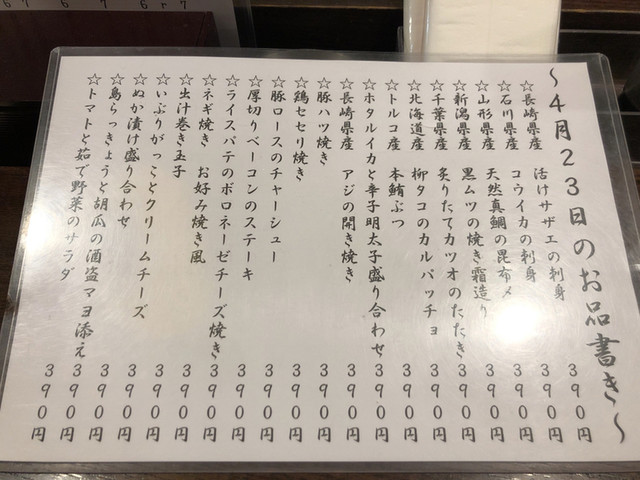 ～４月２３日のお品書き～
☆長崎県産　活けサザエの刺身　３９０円
☆石川県産　コウイカの刺身　３９０円
☆山形県産　天然真鯛の昆布〆　３９０円
☆新潟県産　黒ムツの焼き霜造り　３９０円
☆千葉県産　炙りたてカツオのたたき　３９０円
☆北海道産　柳タコのカルパッチョ　３９０円
☆トルコ産　本鮪ぶつ　３９０円
☆ホタルイカと辛子明太子盛り合わせ　３９０円
☆長崎県産　アジの開き焼き　３９０円
☆豚ハツ焼き　３９０円
☆鶏セセリ焼き　３９０円
☆豚ロースのチャーシュー　３９０円
☆厚切りベーコンのステーキ　３９０円
☆ライスパテのボロネーゼチーズ焼き　３９０円
☆ネギ焼き　お好み焼き風　３９０円
☆出汁巻き玉子　３９０円
☆いぶりがっことクリームチーズ　３９０円
☆ぬか漬け盛り合わせ　３９０円
☆島らっきょうと胡瓜の酒盗マヨ添え　３９０円
☆トマトと茹で野菜のサラダ　３９０円